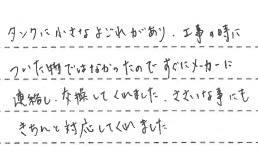 タンクに小さなよごれがあり、工事の時に
ついた物ではなかったのですぐにメーカーに
連絡し、交換してくれました。ささいな事にも
きちんと対応してくれました